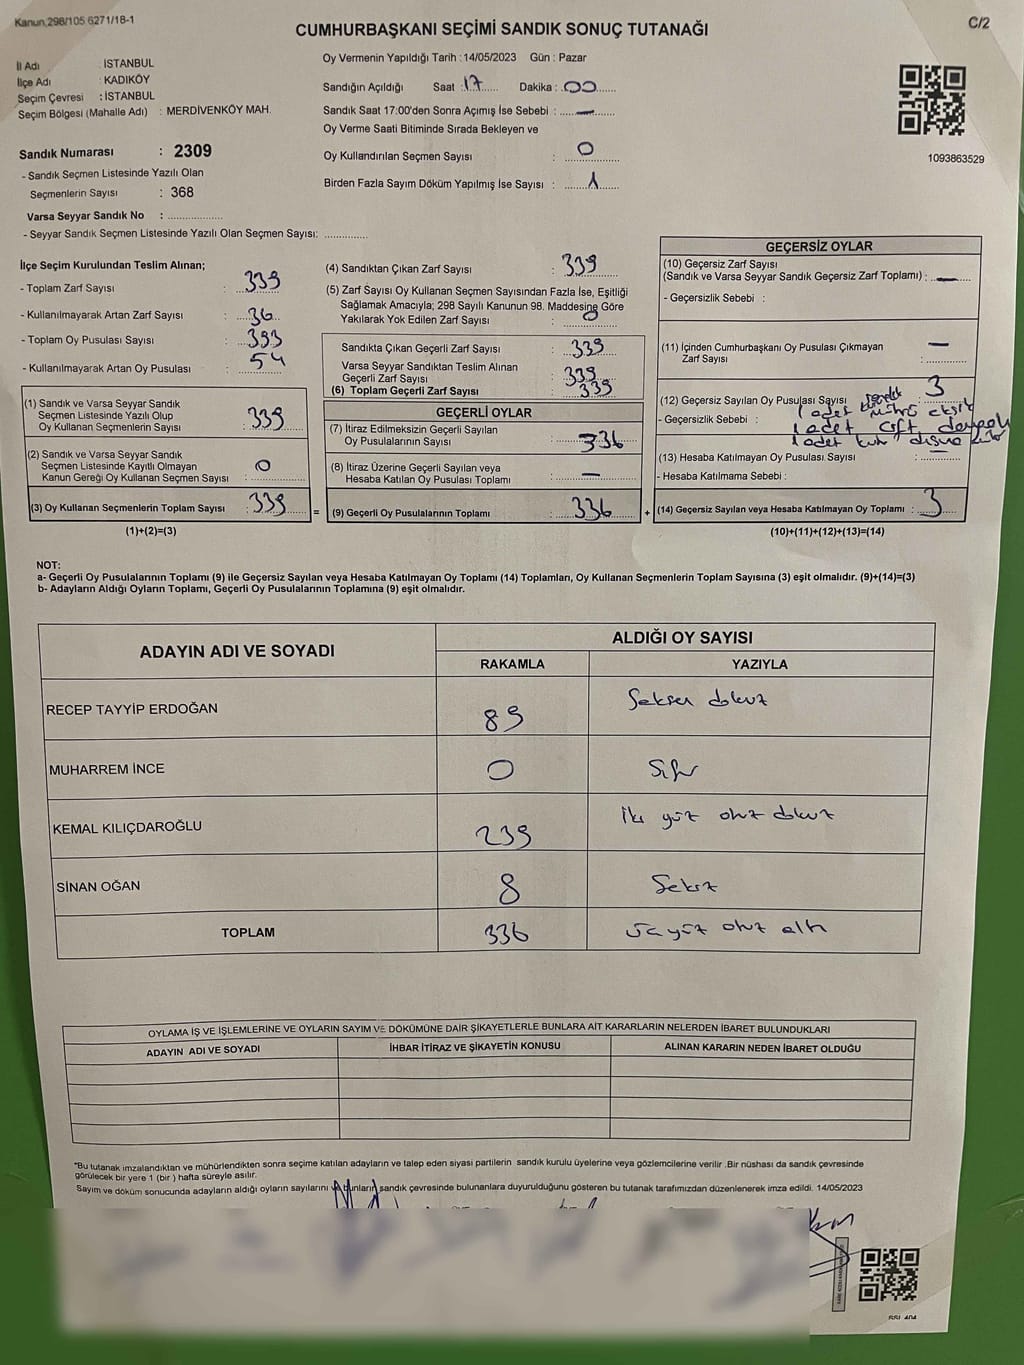 Kanun,298/105.6271/18-1
C/2
CUMHURBAŞKANI SEÇİMİ SANDIK SONUÇ TUTANAĞI
İl Adı : İSTANBUL
İlçe Adı : KADIKÖY
Seçim Çevresi : İSTANBUL
Seçim Bölgesi (Mahalle Adı) : MERDİVENKÖY MAH.
Sandık Numarası : 2309
- Sandık Seçmen Listesinde Yazılı Olan
Seçmenlerin Sayısı : 368
Varsa Seyyar Sandık No : ...................
- Seyyar Sandık Seçmen Listesinde Yazılı Olan Seçmen Sayısı: ..............
Oy Vermenin Yapıldığı Tarih : 14/05/2023 Gün : Pazar
Sandığın Açıldığı Saat : 17 Dakika : 00
Sandık Saat 17:00'den Sonra Açımış İse Sebebi : —
Oy Verme Saati Bitiminde Sırada Bekleyen ve
Oy Kullandırılan Seçmen Sayısı : 0
Birden Fazla Sayım Döküm Yapılmış İse Sayısı : 1
1093863529
İlçe Seçim Kurulundan Teslim Alınan;
- Toplam Zarf Sayısı : 339
- Kullanılmayarak Artan Zarf Sayısı : 36
- Toplam Oy Pusulası Sayısı : 393
- Kullanılmayarak Artan Oy Pusulası : 54
(1) Sandık ve Varsa Seyyar Sandık
Seçmen Listesinde Yazılı Olup
Oy Kullanan Seçmenlerin Sayısı : 339
(2) Sandık ve Varsa Seyyar Sandık
Seçmen Listesinde Kayıtlı Olmayan
Kanun Gereği Oy Kullanan Seçmen Sayısı : 0
(3) Oy Kullanan Seçmenlerin Toplam Sayısı : 339
(1)+(2)=(3)
(4) Sandıktan Çıkan Zarf Sayısı : 339
(5) Zarf Sayısı Oy Kullanan Seçmen Sayısından Fazla İse, Eşitliği
Sağlamak Amacıyla; 298 Sayılı Kanunun 98. Maddesine Göre
Yakılarak Yok Edilen Zarf Sayısı : 0
Sandıkta Çıkan Geçerli Zarf Sayısı : 339
Varsa Seyyar Sandıktan Teslim Alınan
Geçerli Zarf Sayısı : 339
(6) Toplam Geçerli Zarf Sayısı : 339
GEÇERLİ OYLAR
(7) İtiraz Edilmeksizin Geçerli Sayılan
Oy Pusulalarının Sayısı : 336
(8) İtiraz Üzerine Geçerli Sayılan veya
Hesaba Katılan Oy Pusulası Toplamı : —
= (9) Geçerli Oy Pusulalarının Toplamı : 336
GEÇERSİZ OYLAR
(10) Geçersiz Zarf Sayısı
(Sandık ve Varsa Seyyar Sandık Geçersiz Zarf Toplamı) : —
- Geçersizlik Sebebi :
(11) İçinden Cumhurbaşkanı Oy Pusulası Çıkmayan
Zarf Sayısı : —
(12) Geçersiz Sayılan Oy Pusulası Sayısı : 3
- Geçersizlik Sebebi : 1 adet mührü eksik
1 adet çift damgalı
1 adet dışına
(13) Hesaba Katılmayan Oy Pusulası Sayısı : —
- Hesaba Katılmama Sebebi :
+ (14) Geçersiz Sayılan veya Hesaba Katılmayan Oy Toplamı : 3
(10)+(11)+(12)+(13)=(14)
NOT:
a- Geçerli Oy Pusulalarının Toplamı (9) ile Geçersiz Sayılan veya Hesaba Katılmayan Oy Toplamı (14) Toplamları, Oy Kullanan Seçmenlerin Toplam Sayısına (3) eşit olmalıdır. (9)+(14)=(3)
b- Adayların Aldığı Oyların Toplamı, Geçerli Oy Pusulalarının Toplamına (9) eşit olmalıdır.
ADAYIN ADI VE SOYADI
ALDIĞI OY SAYISI
RAKAMLA YAZIYLA
RECEP TAYYİP ERDOĞAN 89 Seksen dokuz
MUHARREM İNCE 0 Sıfır
KEMAL KILIÇDAROĞLU 239 İki yüz otuz dokuz
SİNAN OĞAN 8 Sekiz
TOPLAM 336 üç yüz otuz altı
OYLAMA İŞ VE İŞLEMLERİNE VE OYLARIN SAYIM VE DÖKÜMÜNE DAİR ŞİKAYETLERLE BUNLARA AİT KARARLARIN NELERDEN İBARET BULUNDUKLARI
ADAYIN ADI VE SOYADI İHBAR İTİRAZ VE ŞİKAYETİN KONUSU ALINAN KARARIN NEDEN İBARET OLDUĞU
"Bu tutanak imzalandıktan ve mühürlendikten sonra seçime katılan adayların ve talep eden siyasi partilerin sandık kurulu üyelerine veya gözlemcilerine verilir .Bir nüshası da sandık çevresinde
görülecek bir yere 1 (bir ) hafta süreyle asılır.
Sayım ve döküm sonucunda adayların aldığı oyların sayılarını bunların sandık çevresinde bulunanlara duyurulduğunu gösteren bu tutanak tarafımızdan düzenlenerek imza edildi. 14/05/2023